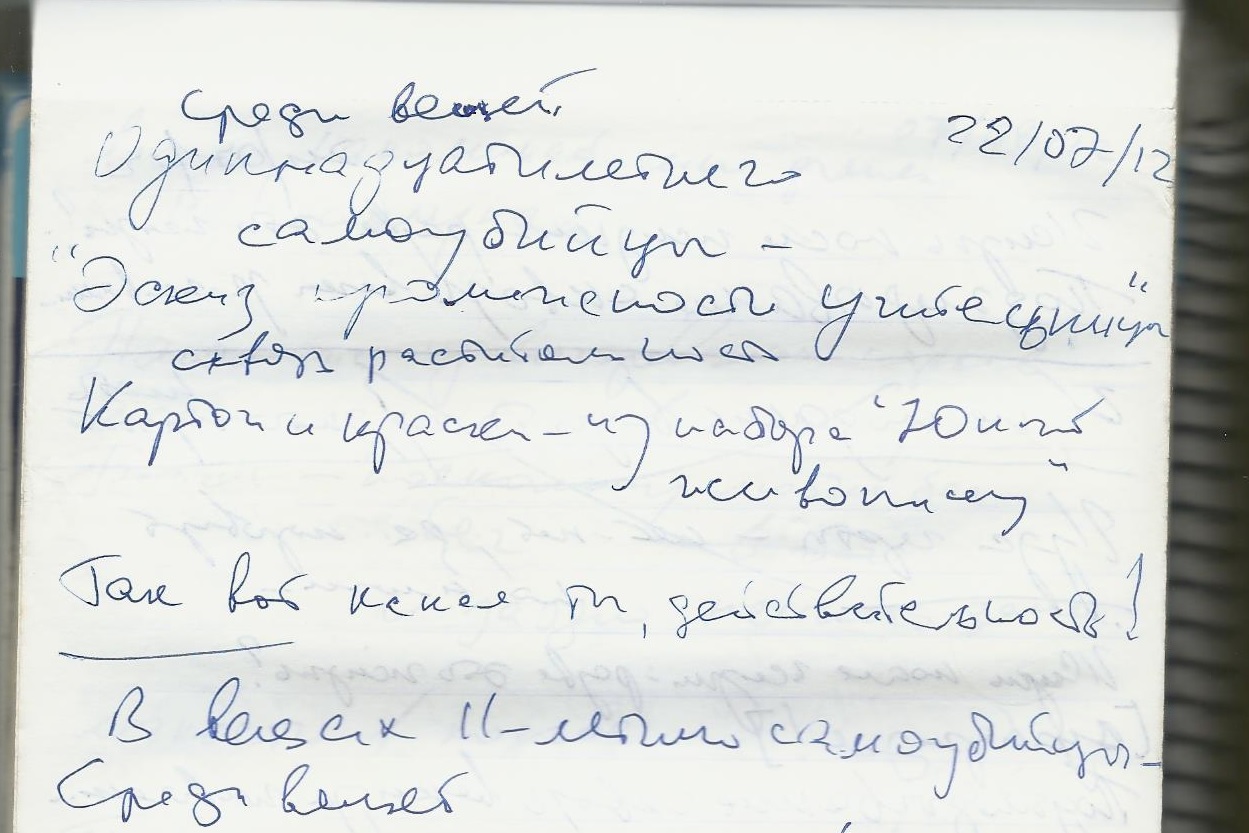 Среди вещей
22/07/12
Одиннадцатилетнего
самоубийцы –
"Эскиз промежности учительницы"
сквозь растительность
Картон и краски – из набора "Юный
живописец"
Так вот какая ты, действительность!
В вещах 11-летнего самоубийцы –
Среди вещей